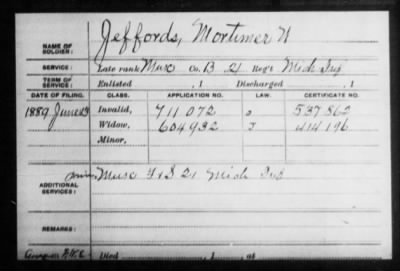 NAME OF SOLDIER: Jeffords, Mortimer N
SERVICE: Late rank Musc Co. B 21 Reg't Mich Inf
TERM OF SERVICE: Enlisted , 1 Discharged , 1
DATE OF FILING. CLASS. APPLICATION NO. LAW. CERTIFICATE NO.
1889 June Invalid, 711 072 537 862
Widow, 604 932 J 414 196
Minor,
ADDITIONAL SERVICES: Musc F&S 21 Mich Inf
REMARKS:
Died , 1 , at